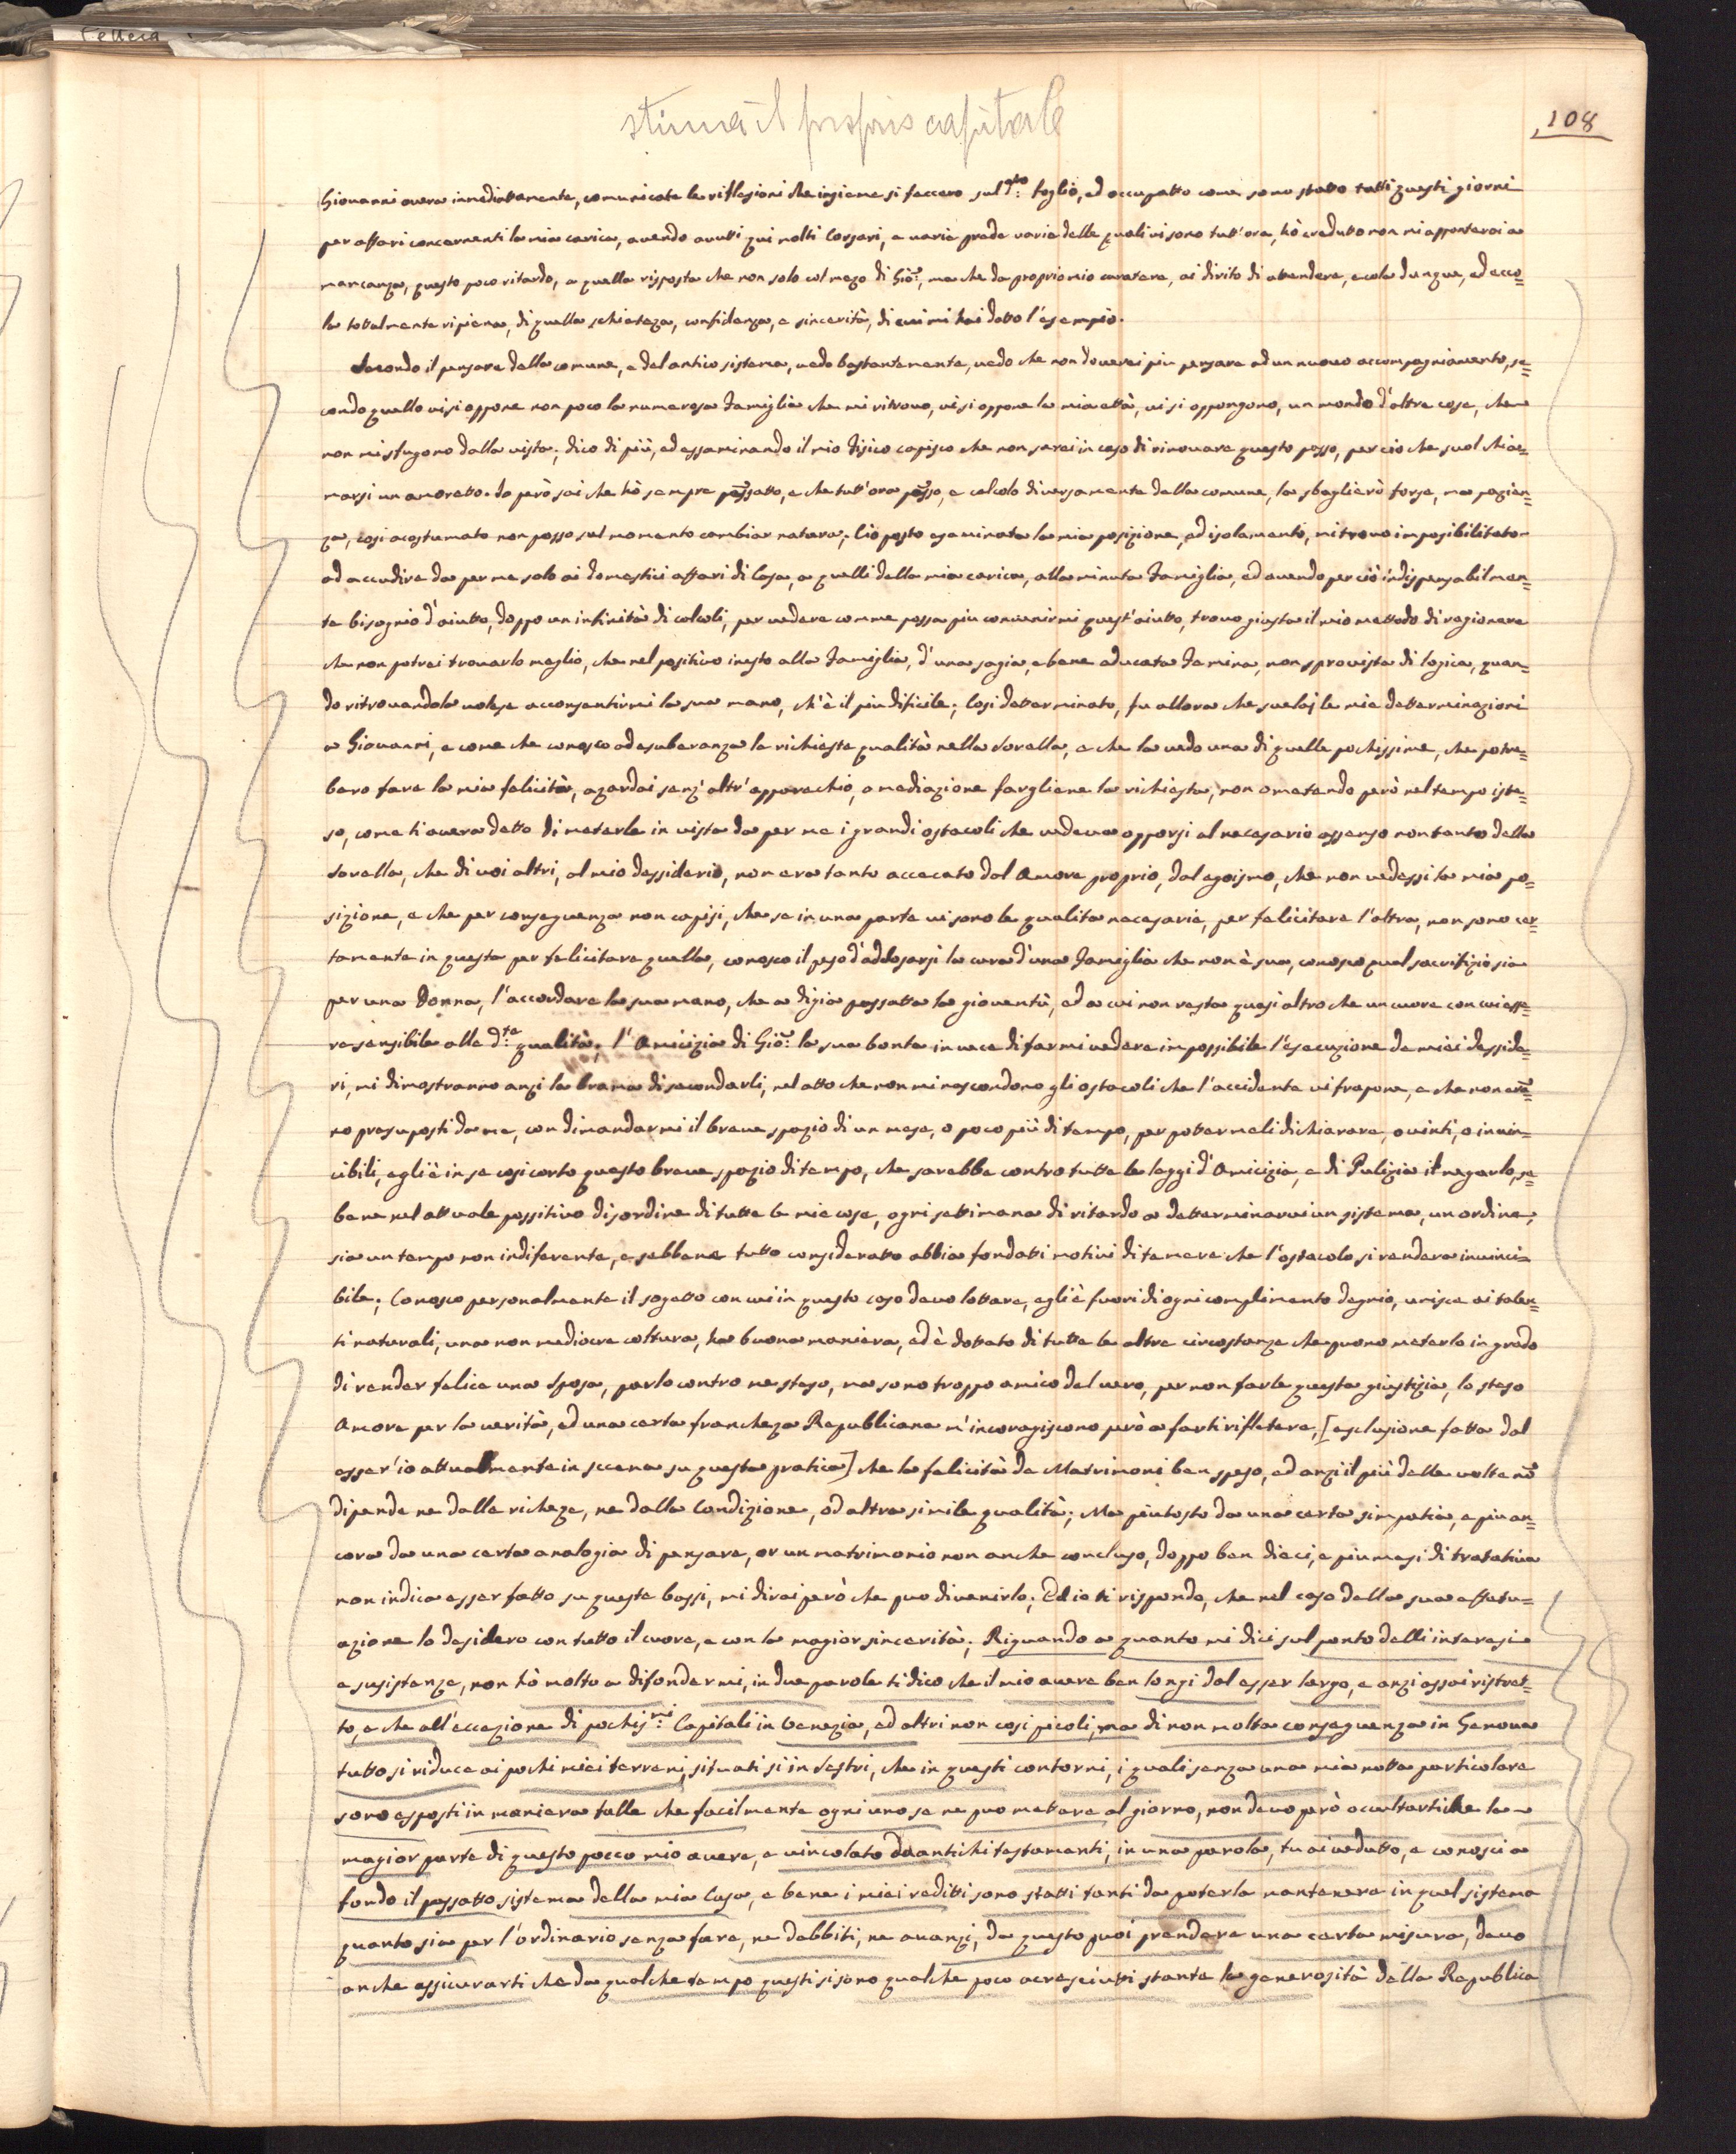 Celleca
stima il proprio capitale
108
Giovanni avera immediattamente, comunicate le riflesioni che insieme si feccero sul d:to foglio, ed occupatto come sono statto tutti questi giorni
per affari concernenti la mia carica, avendo avutti qui molti Corsari, e varie prede varie delle quali vi sono tutt'ora, hò creduto non mi apponterai a
mancanza, questo poco ritardo, a quella risposta che non solo col mezo di Giò:, ma che da proprio mio caratere, ai dirito di attendere, ecola dunque, ed ecco=
la tottalmente ripiena, di quella schieteza, confidenza, e sincerità, di cui mi hai datto l'esempio.
Secondo il pensare della comune, e del antico sistema, vedo bastantemente, vedo che non doverei piu pensare ad un nuovo accompagniamento, se=
condo quello visi oppone non poco la numerosa Famiglia che mi ritrovo, visi oppone la mia ettà, vi si oppongono, un mondo d'altre cose, che
non mi sfugono dalla vista; dico di più, ed essaminando il mio Fisico capisco che non sarei in caso di rinovare questo passo, per ciò che suol chia=
marsi un amoretto. Io però sai che hò sempre pensatto, e che tutt'ora penso, e calcolo diversamente dalla comune, la sbaglierò forse, ma pazien=
za, cosi acostumato non posso sul momento cambiar natura; Ciò posto esaminata la mia posizione, ed isolamento, mi trovo imposibilitato
ad accudire da per me solo ai domestici affari di Casa, a quelli della mia carica, alla minuta Famiglia, ed avendo perciò indispensabilmen=
te bisognio d'aiutto, doppo un infinità di calcoli, per vedere comme possa piu convenirmi quest'aiutto, trovo giusta il mio mettodo di ragionare
che non potrei trovarlo meglio, che nel positivo inesto alla Famiglia, d'una sagia, e bene educata Femina, non sprovista di logica, quan=
do ritrovandola volese acconsentirmi la sua mano, ch'è il piu dificile; Cosi detterminato, fu allora che svelaj le mie detterminazioni
a Giovanni, e come che conosco ad esuberanza le richieste qualità nella Sorella, e che la vedo una di quelle pochissime, che potre=
bero fare la mia felicità, azardai senz'altr'apparechio, o mediazione fargliene la richiesta, non ometendo però nel tempo iste=
so, come ti avera detto di meterle in vista da per me i grandi ostacoli che vedeva opporsi al necesario assenso non tanto della
Sorella, che di voi altri, al mio dessiderio, non era tanto accecato dal Amore proprio, dal egoismo, che non vedessi la mia po=
sizione, e che per conseguenza non capisi, che se in una parte vi sono le qualita necesarie, per felicitare l'altra, non sono cer=
tamente in questa per felicitare quella, conosco il peso d'addosarsi la cura d'una Famiglia che non è sua, conosco qual sacrifizio sia
per una Donna, l'accordare la sua mano, che a digia passatta la gioventù, ed a cui non resta quasi altro che un cuore con cui esse=
re sensibile alle d:te qualità; l'Amicizia di Giò: la sua bonta in vece di farmi vedere impossibile l'esecuzione de miei desside=
ri, mi dimostranno anzi la brama di secondarli, nel atto che non mi nascondono gli ostacoli che l'accidente vi frapone, e che non era=
no presuposti da me, con dimandarmi il breve spazio di un mese, o poco più di tempo, per potter meli dichiarare, o vinti, o invin=
cibili, egli è in se cosi corto questo breve spazio di tempo, che sarebbe contro tutte le leggi d'Amicizia, e di Pulizia il negarlo, se
bene nel attuale possitivo disordine di tutte le mie cose, ogni settimana di ritardo a detterminarvi un sistema, un ordine,
sia un tempo non indiferente, e sebbene tutto consideratto abbia fondatti motivi di temere che l'ostacolo si rendera invinci=
bile; Conosco personalmente il sogetto con cui in questo caso devo lottare, egli è fuori di ogni complimento degnio, unisce ai talen=
ti naturali, una non mediocre coltura, ha buona maniera, ed è dottato di tutte le altre circostanze che puono meterlo in grado
di render felice una Sposa, parlo contro me steso, ma sono troppo amico del vero, per non farle questa giustizia, lo steso
Amore per la verità, ed una certa francheza Republicana m'incoragiscono però a farti rifletere, [esclusione fatta dal
esser'io attualmente in sccena su questa pratica] che la felicità de Matrimoni ben speso, ed anzi il più delle volte nò
dipende ne dalle richeze, ne dalla Condizione, od altra simile qualità; Ma piutosto da una certa simpatia, e piu an=
cora da una certa analogia di pensare, or un matrimonio non anche concluso, doppo ben dieci, e piu mesi di tratativa
non indica esser fatto su queste bassi, mi dirai però che puo divenirlo; Ed io ti rispondo, che nel caso della sua effetu=
azione lo desidero con tutto il cuore, e con la magior sincerità; Riguardo a quanto mi dici sul ponto delli interesi
e susistenze, non hò molto a difondermi, in due parole ti dico che il mio avere ben longi dal esser largo, e anzi assai ristret=
to, e che all'eccezione di pochis:mi Capitali in Venezia, ed altri non cosi picoli, ma di non molta conseguenza in Genova
tutto si riduce ai pochi miei terreni, situati si in Sestri, che in questi contorni, i quali senza una mia notta particolare
sono esposti in maniera talle che facilmente ogni uno se ne puo mettere al giorno, non devo però occultarti che la
magior parte di questo pocco mio avere, e vincolato da antichi testamenti, in una parola, tu ai vedutto, e conosci a
fondo il passatto sistema della mia Casa, e bene i miei redditi sono statti tanti da poterla mantenere in quel sistema
quanto sia per l'ordinario senza fare, ne debbiti, ne avanzi, da questo puoi prendere una certa misura, devo
anche assicurarti che da qualche tempo questi si sono qualche poco acresciutti stante la generozità della Republica